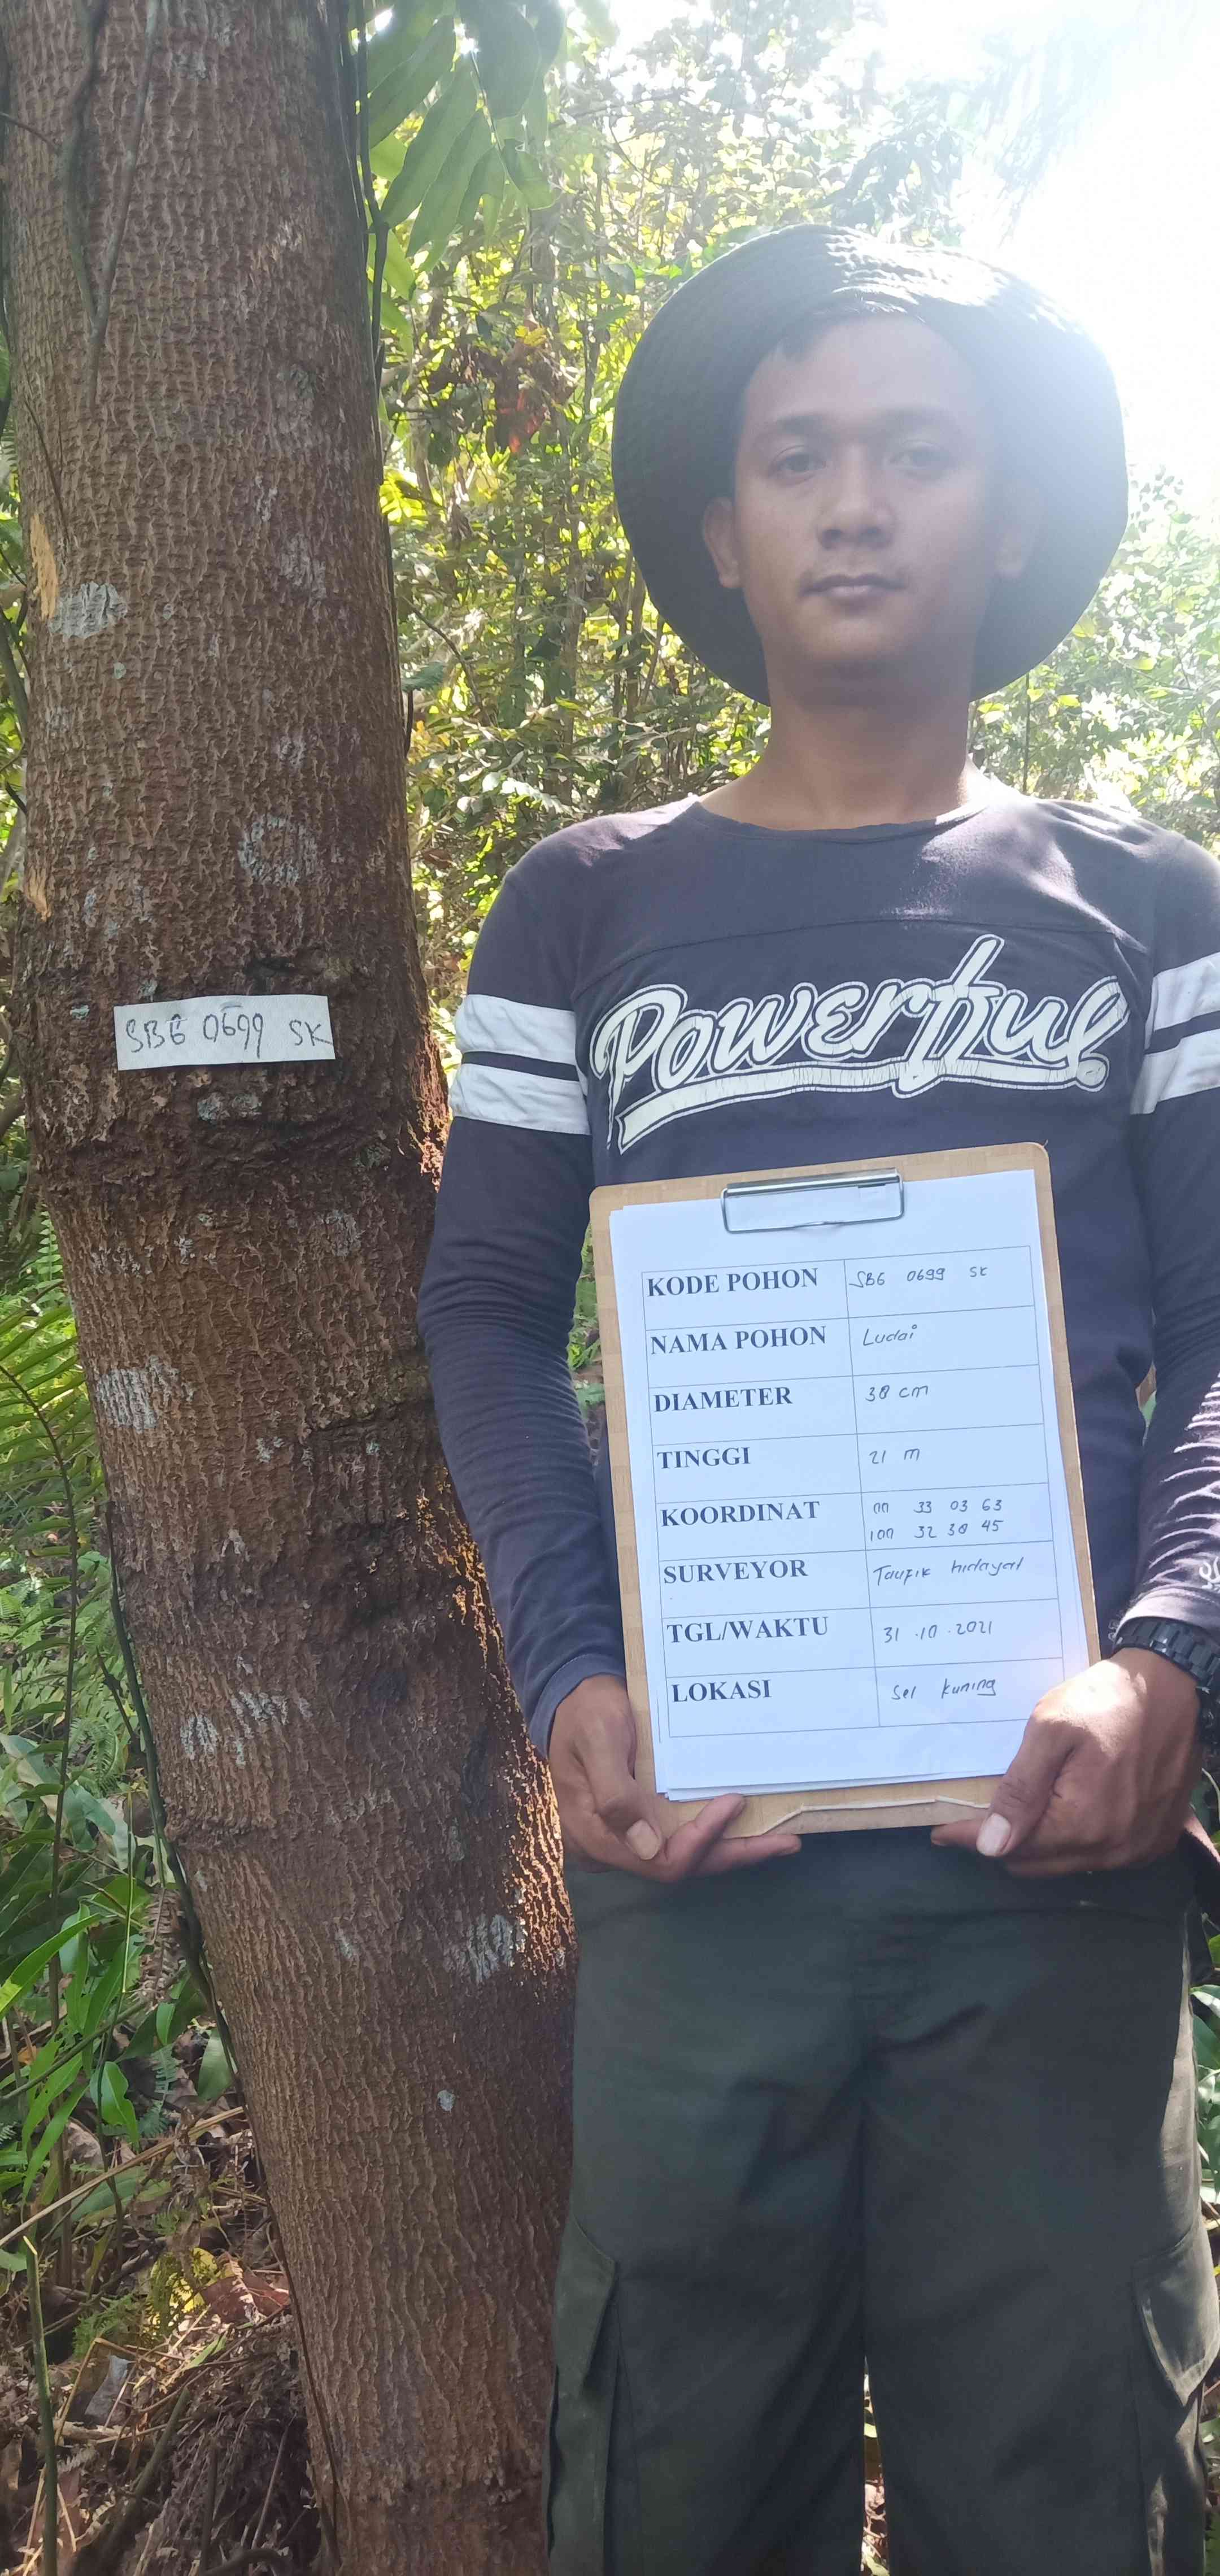 SBG 0699 SK
Powerful
KODE POHON SBG 0699 SK
NAMA POHON Ludai
DIAMETER 38 cm
TINGGI 21 m
KOORDINAT 00 33 03 63
100 32 38 45
SURVEYOR Taufik hidayat
TGL/WAKTU 31.10.2021
LOKASI Sei kuning